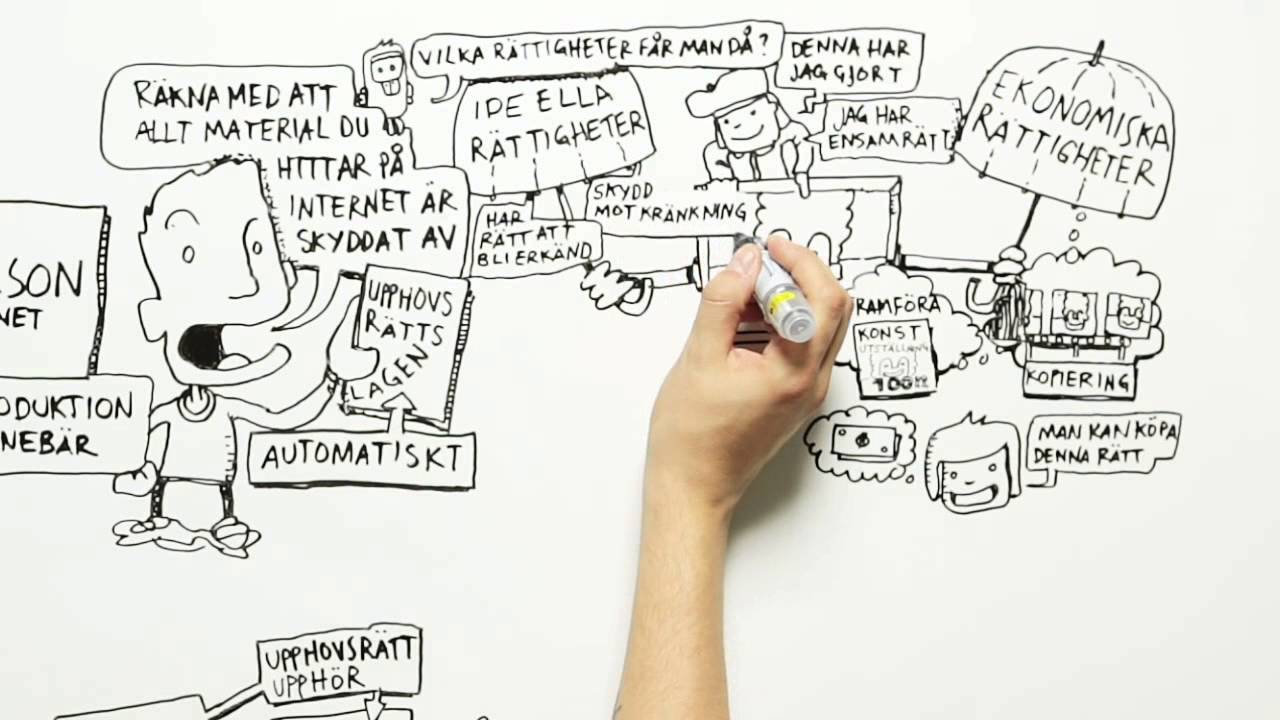 RÄKNA MED ATT
ALLT MATERIAL DU
HITTAR PÅ
INTERNET ÄR
SKYDDAT AV
UPPHOVS
RÄTTS
LAGEN
AUTOMATISKT
SON
NET
ODUKTION
NEBÄR
VILKA RÄTTIGHETER FÅR MAN DÅ?
IDEELLA
RÄTTIGHETER
HAR
RÄTT ATT
BLI ERKÄND
SKYDD
MOT KRÄNKNING
DENNA HAR
JAG GJORT
JAG HAR
ENSAMRÄTT
EKONOMISKA
RÄTTIGHETER
RAMFÖRA
KONST
UTSTÄLLNING
100
KOPIERING
MAN KAN KÖPA
DENNA RÄTT
UPPHOVSRÄTT
UPPHÖR